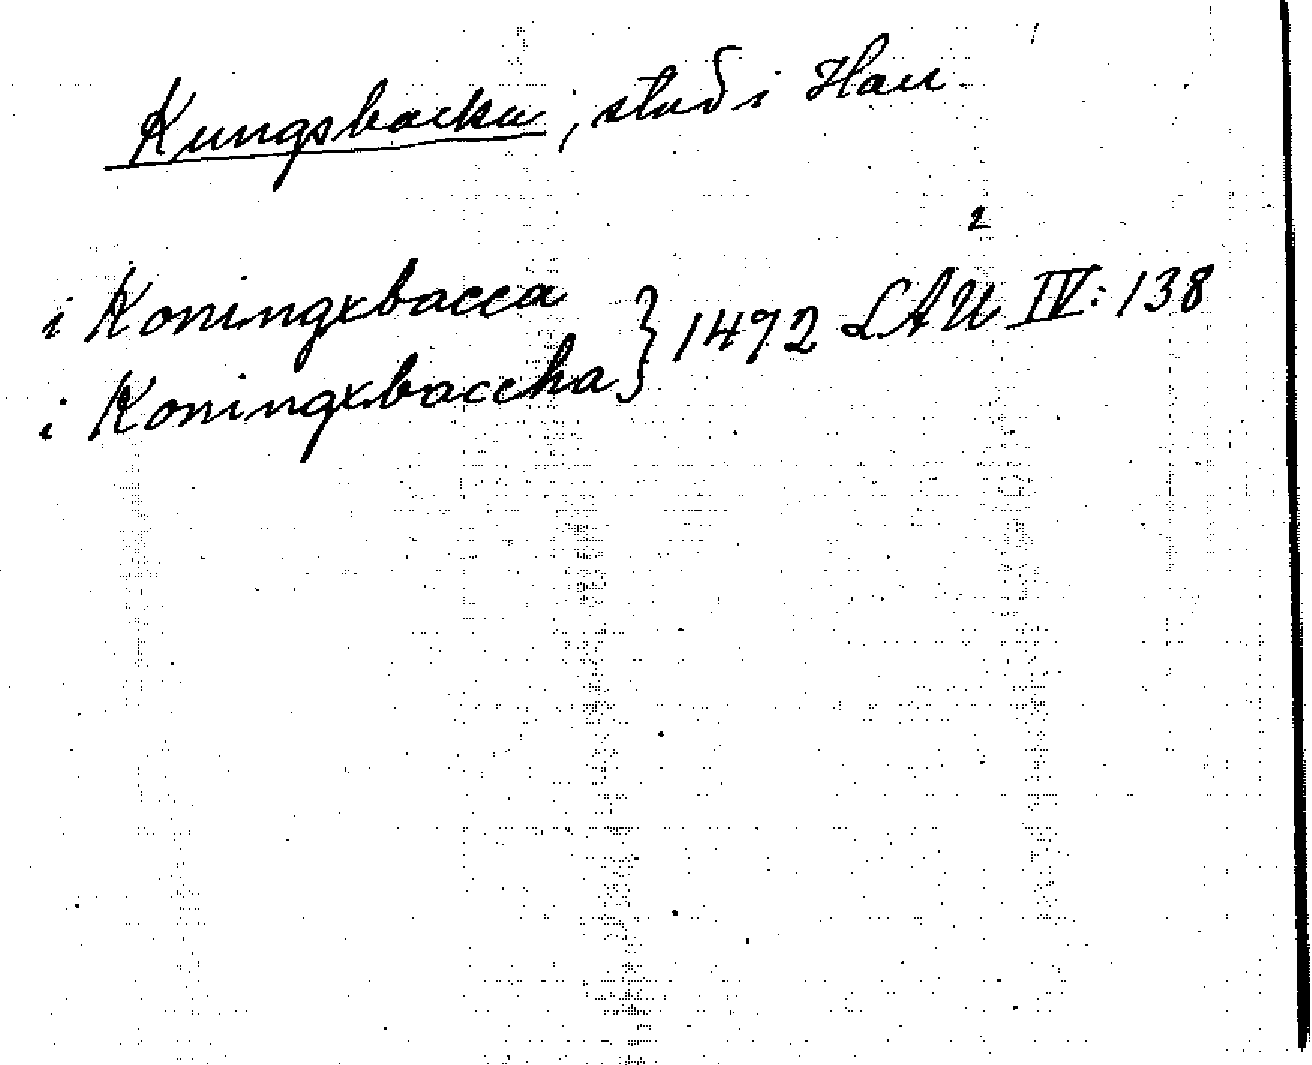 Kungsbacka, stad i Hall
i Koningxbacca } 1472 LAU² IV: 138
i Koningxbaccha